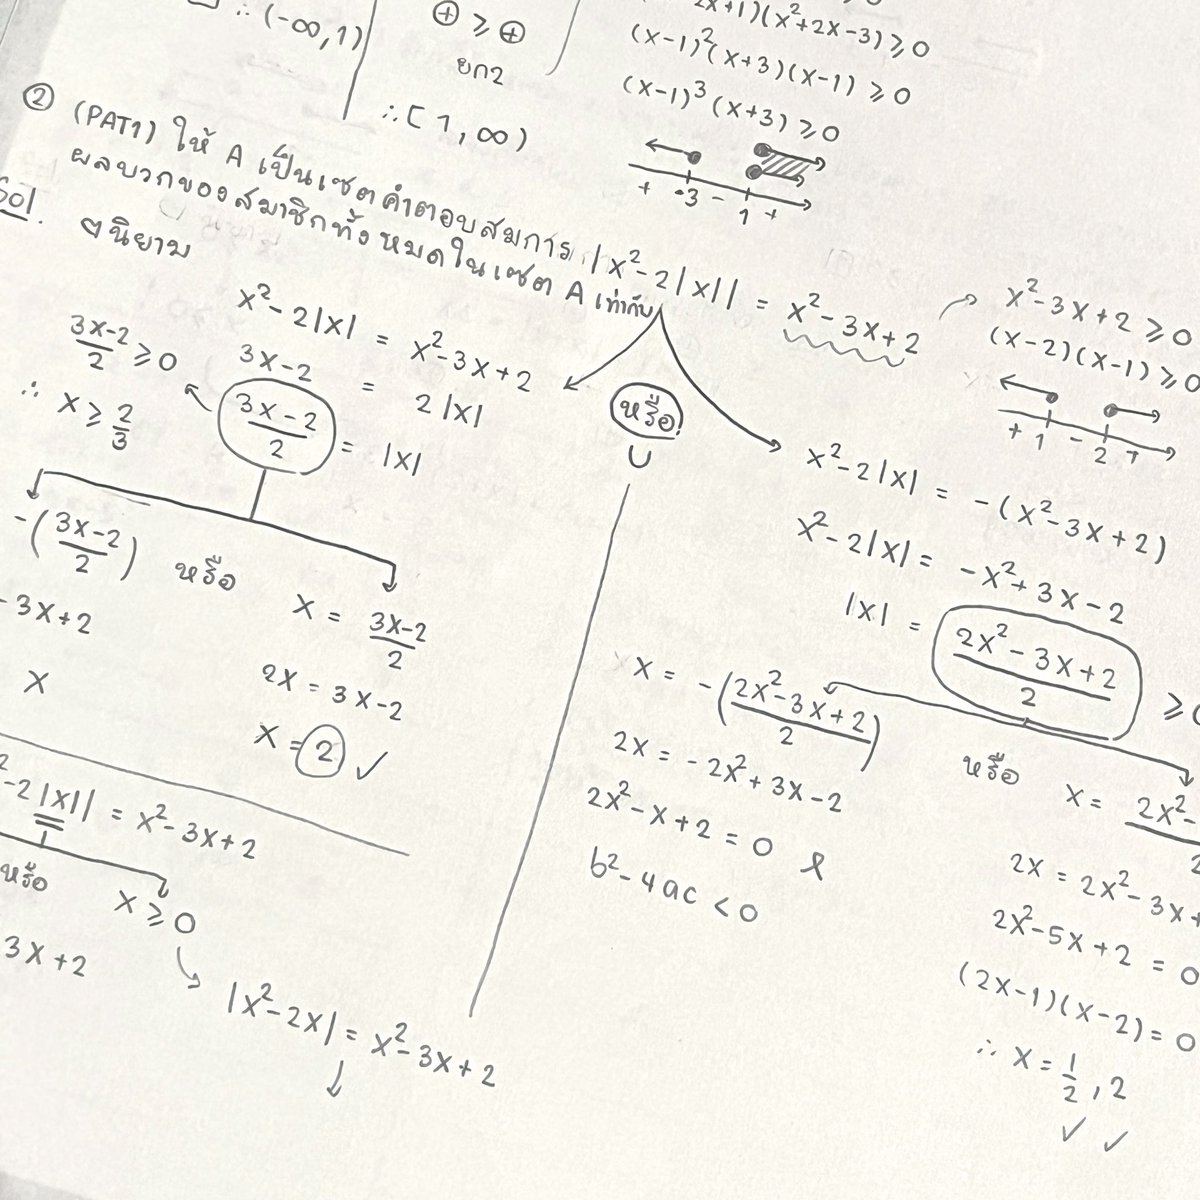 ∴ (-∞, 1)
⊕ ⩾ ⊕
ยก2
∴ [ 1, ∞)
2x+1)(x²+2x-3) ⩾ 0
(x-1)²(x+3)(x-1) ⩾ 0
(x-1)³(x+3) ⩾ 0
+ -3 - 1 +
② (PAT1) ให้ A เป็นเซตคำตอบสมการ |x²-2|x|| = x²-3x+2
ผลบวกของสมาชิกทั้งหมดในเซต A เท่ากับ
Sol. นิยาม
x²-3x+2 ⩾ 0
(x-2)(x-1) ⩾ 0
+ 1 - 2 +
x²-2|x| = x²-3x+2
3x-2 = 2|x|
(3x-2)/2 = |x|
(3x-2)/2 ⩾ 0
∴ x ⩾ 2/3
-((3x-2)/2) หรือ x = (3x-2)/2
-3x+2
x
2x = 3x-2
x = 2 ✓
หรือ
∪
x²-2|x| = -(x²-3x+2)
x²-2|x| = -x²+3x-2
|x| = (2x²-3x+2)/2 ⩾
x = -((2x²-3x+2)/2) หรือ x = 2x²-
2x = -2x²+3x-2
2x²-x+2 = 0
b²-4ac < 0
2x = 2x²-3x+
2x²-5x+2 = 0
(2x-1)(x-2) = 0
∴ x = 1/2, 2
✓ ✓
-2|x|| = x²-3x+2
หรือ x ⩾ 0
3x+2
|x²-2x| = x²-3x+2